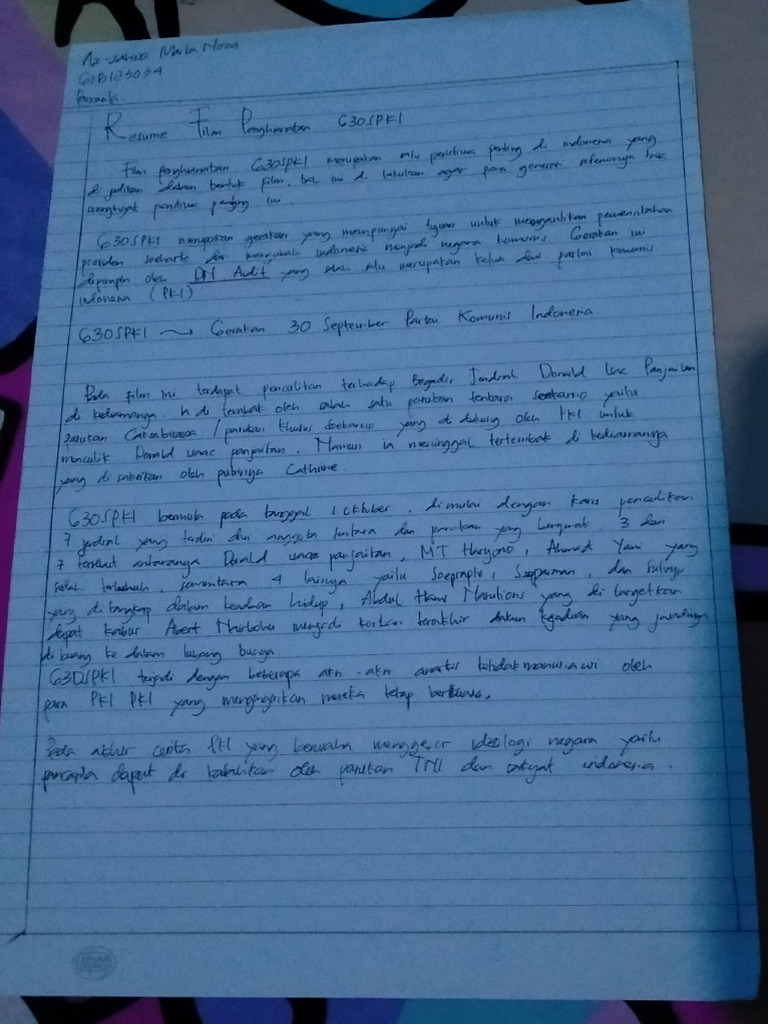 Maila
G1B123034
Resume Film Penghianatan G30SPKI
Film penghianatan G30SPKI merupakan alu peristiwa penting di indonesia yang
di jadikan dalam bentuk film, hal ini di lakukan agar para generasi
mengingat peristiwa penting ini.
G30SPKI merupakan gerakan yang mempunyai tujuan untuk menggantikan pemerintahan
presiden Soekarto dan mengubah indonesia menjadi negara komunis Gerakan ini
dipimpin oleh DN Aidit yang salah alu merupakan ketua dari partai komunis
indonesia (PKI)
G30SPKI → Gerakan 30 September Partai Komunis Indonesia
Pada film ini terdapat penculikan terhadap Brigadir Jendral Donald Isac Panjaitan
di kediamannya. di tembak oleh salah satu pasukan tentara Soekarno yaitu
pasukan / pasukan khusus Soekarno yang di dukung oleh PKI untuk
menculik Donald isaac panjaitan. Namun ia meninggal tertembak di kediamannya
yang di saksikan oleh putrinya Cathrine.
G30SPKI bermula pada tanggal 1 Oktober. dimulai dengan kasus penculikan
7 jendral yang terdiri dari anggota tentara dan yang 3 dari
7 tersebut antaranya Donald isaac panjaitan, MT Haryono, Ahmad Yani yang
sementara 4 lainya yaitu Soeprapto, Soparman, dan Sutoyo
yang di tangkap dalam keadaan hidup, Abdul Haris Nasutions yang di targetkan
dapat kabur. menjadi korban terakhir dalam kejadian yang
di buang ke dalam lubang buaya.
G30SPKI terjadi dengan beberapa aksi-aksi anarkis oleh
para PKI PKI yang menginginkan mereka tetap berkuasa.
Pada akhir cerita PKI yang berusaha menggeser ideologi negara yaitu
pancasila dapat di kalahkan oleh pasukan TNI dan rakyat indonesia.